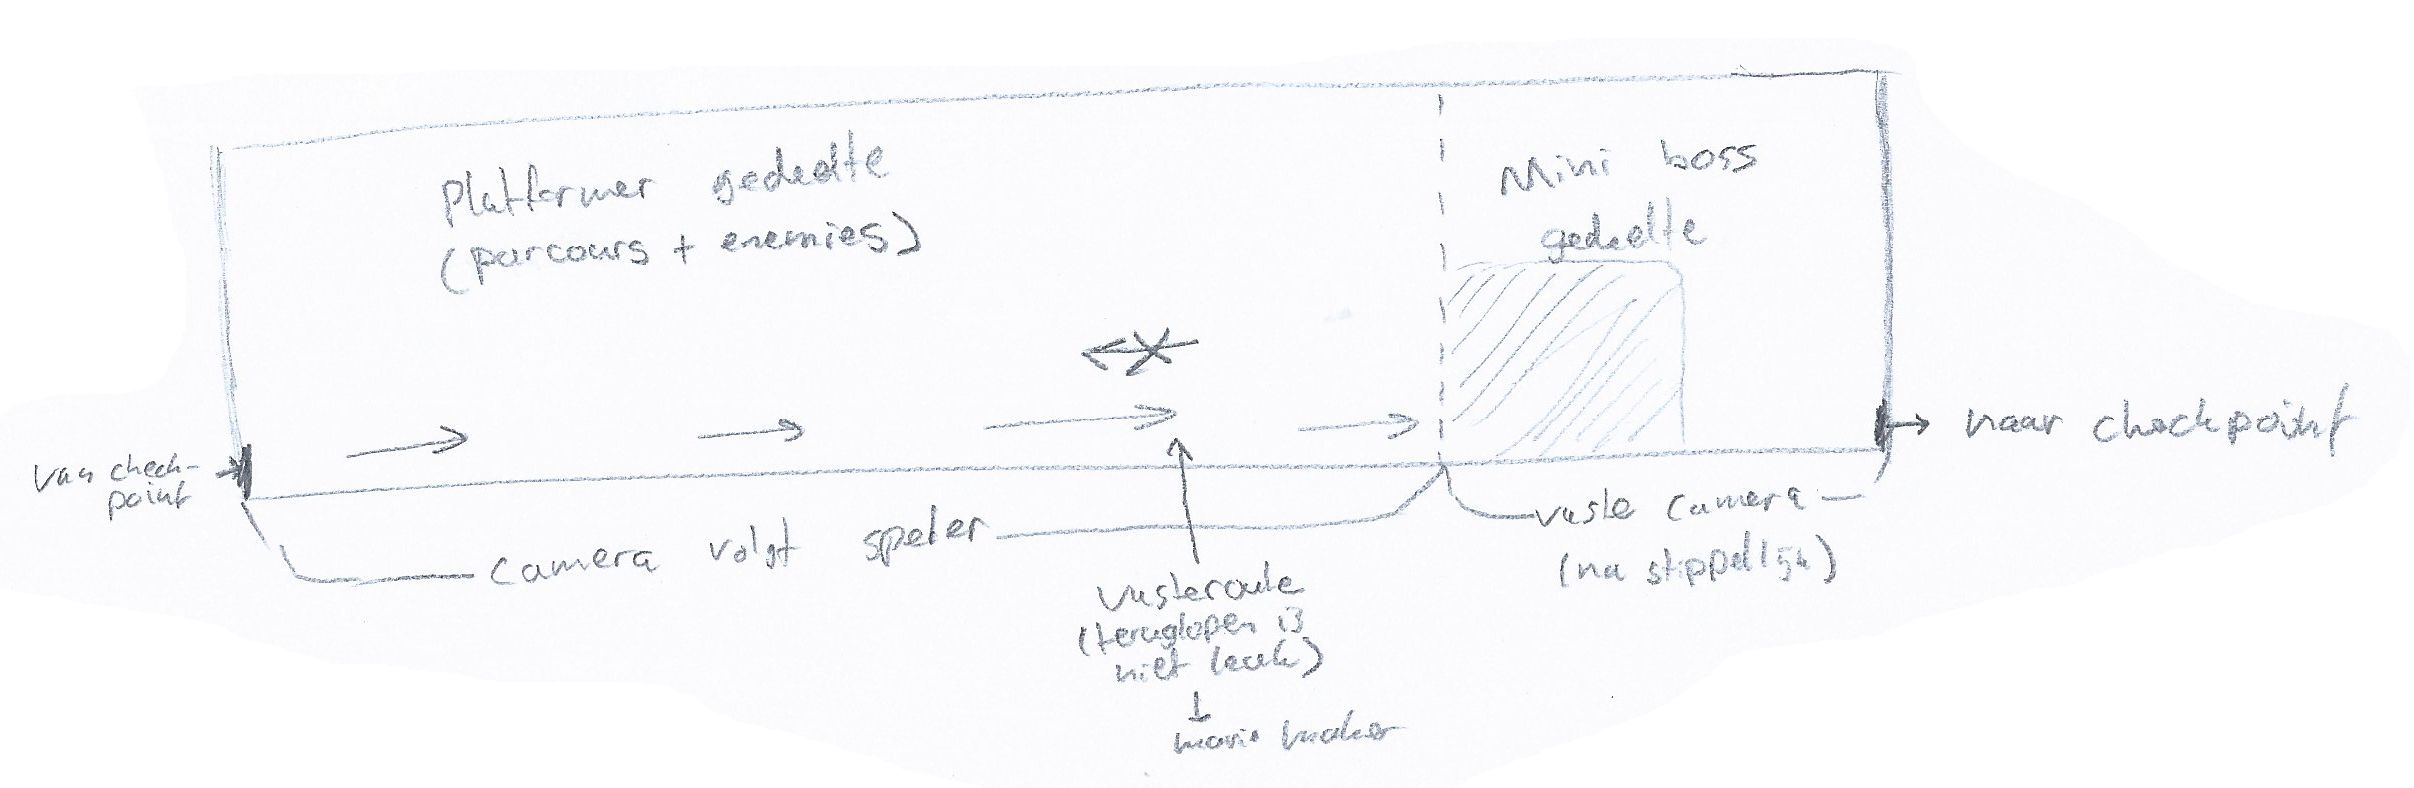 Platformer gedeelte
(parcours + enemies)
Mini boss
gedeelte
van check-
point
naar checkpoint
camera volgt speler
vaste camera
(na stippellijn)
vasteroute
(teruglopen is
niet leuk)
mario maker